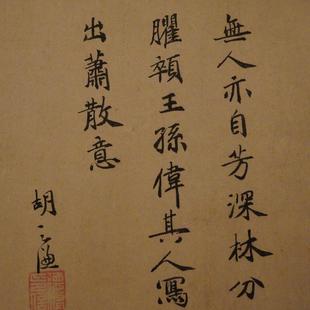 無人亦自芳深林分
臞顇王孫偉其人寫
出蕭散意
胡一謙